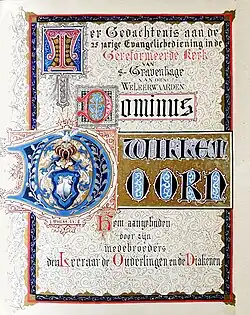 Ter Gedachtenis aan de
25 jarige Evangeliebediening in de
Gereformeerde Kerk
VAN
s-Gravenhage
VAN DEN
WELEERWAARDEN
Dominus
WILLEM
DOORN
Hem aangeboden
door zijn
medebroeders
den Leeraar de Ouderlingen en de Diakenen